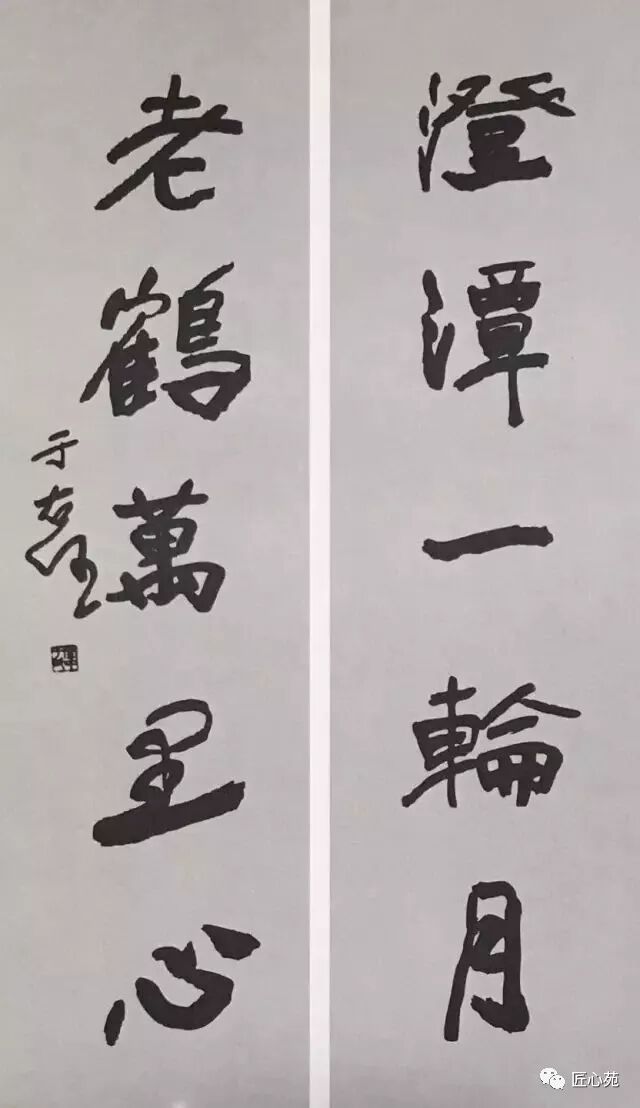 澄潭一輪月
老鶴萬里心
于右任
匠心苑